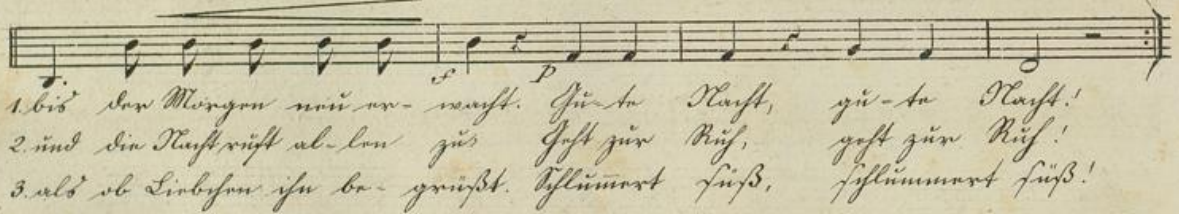 f p
1. bis der Morgen neu er- wacht. Gu-te Nacht, gu-te Nacht!
2. und die Nacht ruft al-len zu: Geht zur Ruh, geht zur Ruh!
3. als ob Liebchen ihn be- grüßt. Schlummert süß, schlummert süß!